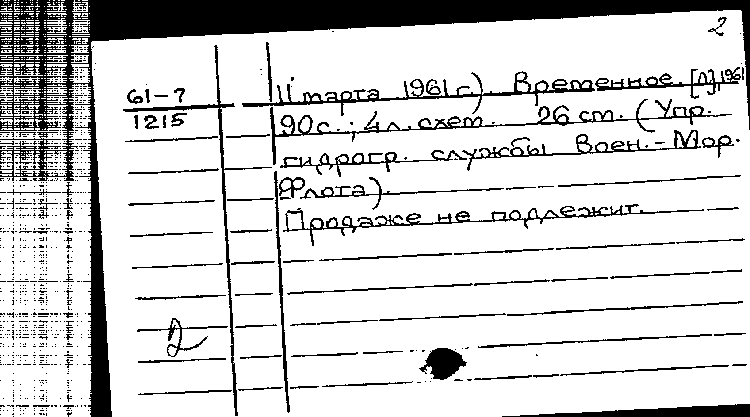 2
61-7
1215
11 марта 1961 г.). Временное. [Л], 1961
90 с.; 4 л. схет. 26 ст. (Упр.
гидрогр. службы Воен.-Мор.
Флота).
Продаже не подлежит.
2